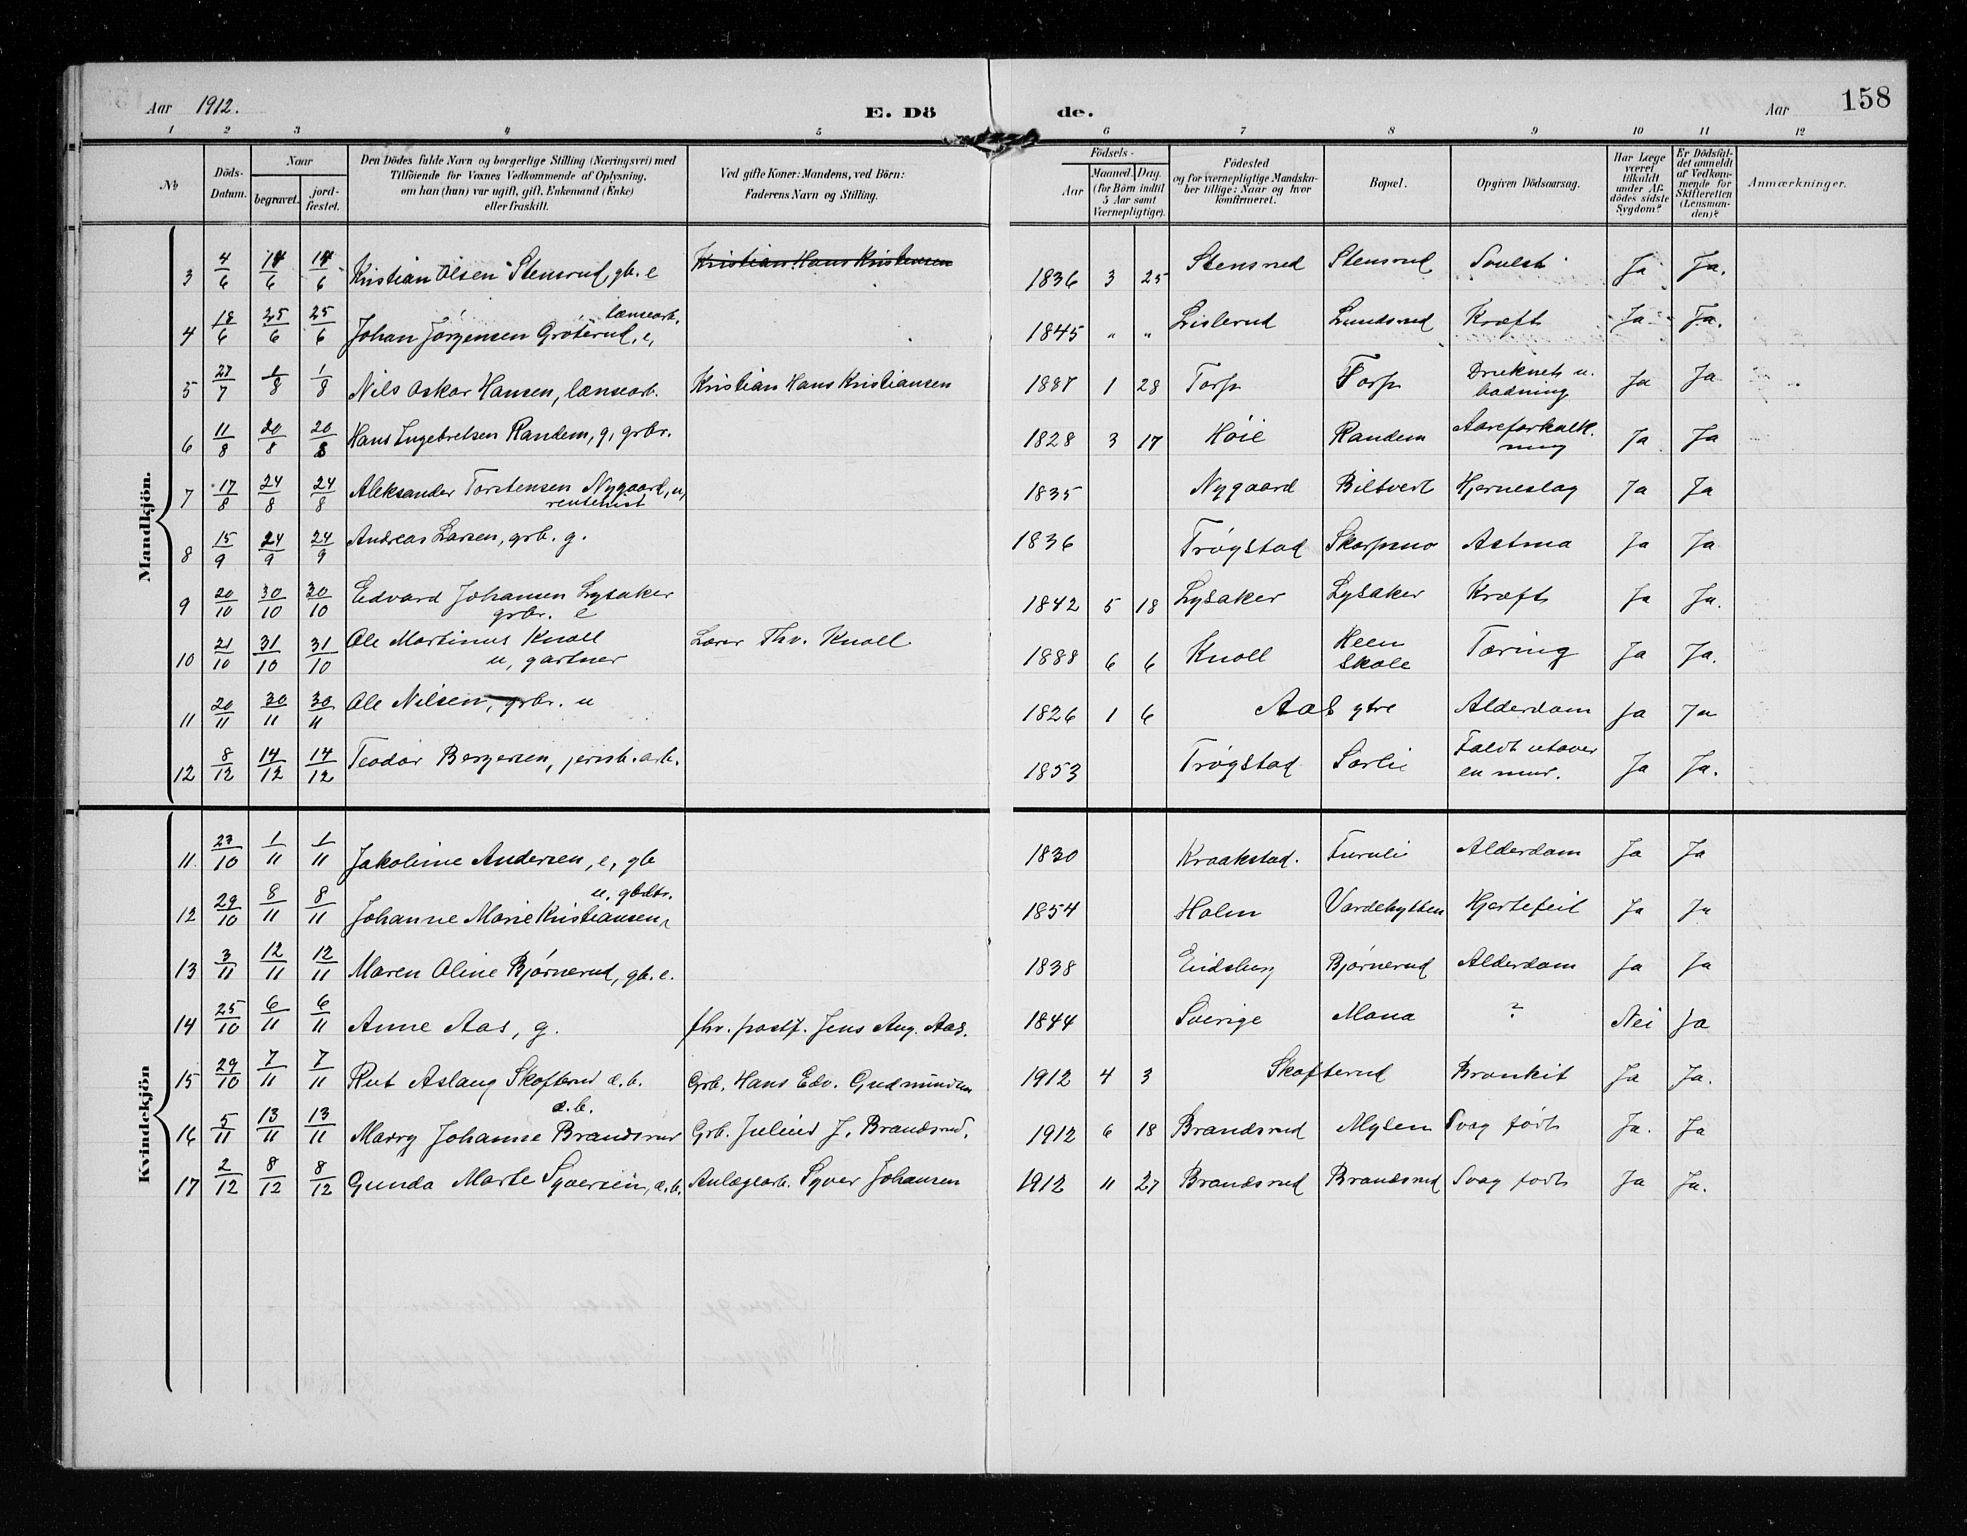 Aar 1912. E. Dö de. Aar 158
1 2 3 4 5 6 7 8 9 10 11 12
No Döds-Datum. Naar begravet. jordfæstet. Den Dödes fulde Navn og borgerlige Stilling (Næringsvei) med Tilföiende for Voxnes Vedkommende af Oplysning, om han (hun) var ugift, gift, Enkemand (Enke) eller fraskilt. Ved gifte Koner: Mandens, ved Börn: Faderens Navn og Stilling. Födsels- Aar Maaned. Dag. (for Börn indtil 5 Aar samt Værnepligtige). Födested og for værnepligtige Mandskaber tillige: Naar og hvor konfirmeret. Bopæl. Opgiven Dödsaarsag. Har Læge været tilkaldt under Afdödes sidste Sygdom? Er Dödsfaldet anmeldt af Vedkommende for Skifteretten (Lensmanden)? Anmærkninger.
Mandkjön.
3 4/6 14/6 14/6 Kristian Olsen Stensrud, gb. e Kristian Hans Kristensen 1836 3 25 Stensrud Stensrud Ja Ja.
4 18/6 25/6 25/6 Johan Jørgensen Grøterud, e, lænsearb. 1845 " " Lislerud Lundsrud Kræft Ja Ja.
5 27/7 1/8 1/8 Nils Oskar Hansen, lænsearb. Kristian Hans Kristiansen 1887 1 28 Torp Torp Druknet u. badning Ja Ja
6 11/8 20/8 20/8 Hans Ingebretsen Randem, g, grbr. 1828 3 17 Høie Randem Aareforkalkning Ja Ja
7 17/8 24/8 24/8 Aleksander Torstensen Nygaard, u, rentenist 1835 Nygaard Biltvedt Hjerneslag Ja Ja
8 15/9 24/9 24/9 Andreas Larsen, grb. g. 1836 Trøgstad Skorpsmo Astma Ja Ja
9 20/10 30/10 30/10 Edvard Johansen Lysaker grbr. e 1842 5 18 Lysaker Lysaker Kræft Ja Ja.
10 21/10 31/10 31/10 Ole Martinus Knoll u, gartner Lærer Thv. Knoll 1888 6 6 Knoll Heen skole Tæring Ja Ja.
11 20/11 30/11 30/11 Ole Nilsen, grbr. u 1826 1 6 Aas ytre Alderdom Ja Ja
12 8/12 14/12 14/12 Teodor Bergersen, jernb. arb. 1853 Trøgstad Sørlie Faldt utover en mur. Ja Ja.
Kvindekjön
11. 27/10 1/11 1/11 Jakoline Andersen, e, gb 1830 Kraakstad. Furuli Alderdom Ja Ja
12 29/10 8/11 8/11 Johanne Marie Kristiansen, u, gbdtr. 1854 Holm Vardehytten Hjertefeil Ja Ja
13 3/11 12/11 12/11 Maren Oline Bjørnerud, gb. e. 1838 Eidsberg Bjørnerud Alderdom Ja Ja
14 25/10 6/11 6/11 Anne Aas, g. fhv. postf. Jens Aug. Aas. 1844 Sverige Mona ? Nei Ja
15 29/10 7/11 7/11 Rut Aslaug Skofterud æ. b. Grb. Hans Edv. Gudmundsen 1912 4 3 Skofterud Bronkit Ja Ja.
16 5/11 13/11 13/11 Marry Johanne Brandsrud æ. b. Grb. Julius J. Brandsrud. 1912 6 18 Brandsrud Mysen Svag født Ja. Ja
17 2/12 8/12 8/12 Gunda Marte Syversen, æ. b. Anlægsarb. Syver Johansen 1912 11 27 Brandsrud Brandsrud Svag født Ja Ja.